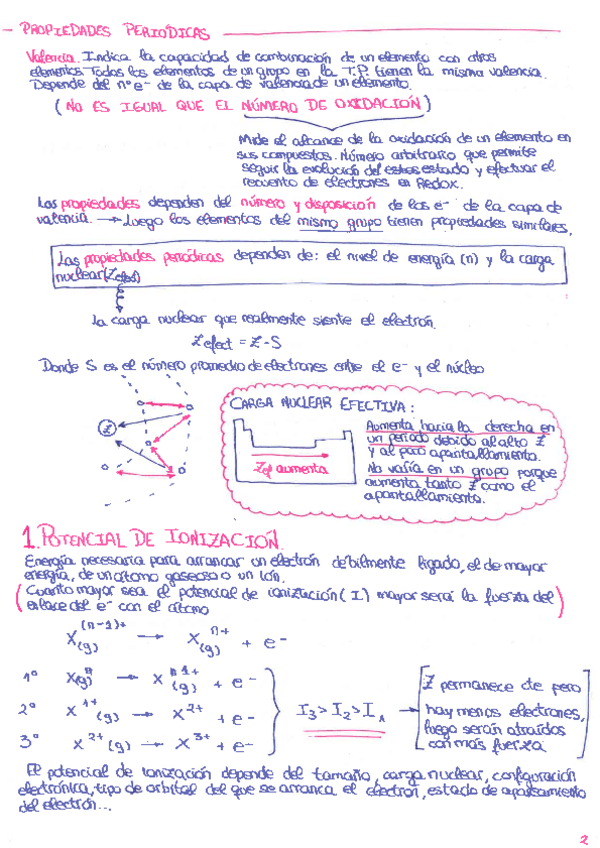 PROPIEDADES PERIÓDICAS
Valencia. Indica la capacidad de combinación de un elemento con otros
elementos. Todos los elementos de un grupo en la T.P. tienen la misma valencia.
Depende del nº e- de la capa de valencia de un elemento.
(NO ES IGUAL QUE EL NÚMERO DE OXIDACIÓN)
Mide el alcance de la oxidación de un elemento en
sus compuestos. Número arbitrario que permite
seguir la evolución del estado y efectuar el
recuento de electrones en Redox.
Las propiedades dependen del número y disposición de los e- de la capa de
valencia. → Luego los elementos del mismo grupo tienen propiedades similares.
Las propiedades periódicas dependen de: el nivel de energía (n) y la carga
nuclear (Zefect)
La carga nuclear que realmente siente el electrón.
Zefect = Z - S
Donde S es el número promedio de electrones entre el e- y el núcleo
Z
CARGA NUCLEAR EFECTIVA:
Aumenta hacia la derecha en
un período debido al alto Z
y al poco apantallamiento.
No varía en un grupo porque
aumenta tanto Z como el
apantallamiento.
Zef aumenta
1. POTENCIAL DE IONIZACIÓN.
Energía necesaria para arrancar un electrón débilmente ligado, el de mayor
energía, de un átomo gaseoso o un ión.
(Cuanto mayor sea el potencial de ionización (I) mayor será la fuerza del
enlace del e- con el átomo)
X(g)(n-1)+ → X(g)n+ + e-
1º X(g) → X1+(g) + e-
2º X1+(g) → X2+ + e-
3º X2+(g) → X3+ + e-
I3 > I2 > I1
Z permanece cte pero
hay menos electrones,
luego serán atraídos
con más fuerza
El potencial de ionización depende del tamaño, carga nuclear, configuración
electrónica, tipo de orbital del que se arranca el electrón, estado de apareamiento
del electrón...
2